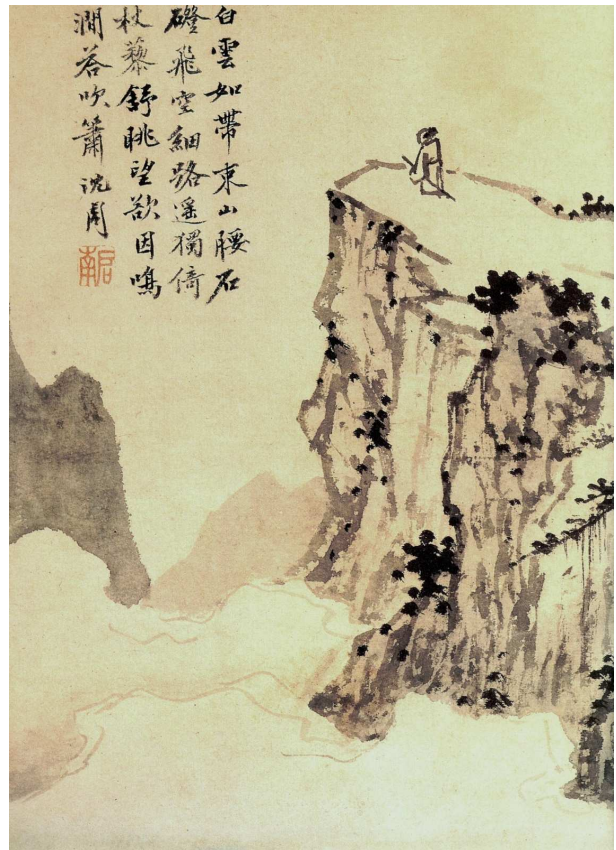 白雲如帶束山腰石
磴飛空細路遥獨倚
杖藜舒眺望欲因鳴
澗荅吹簫 沈周
啓南